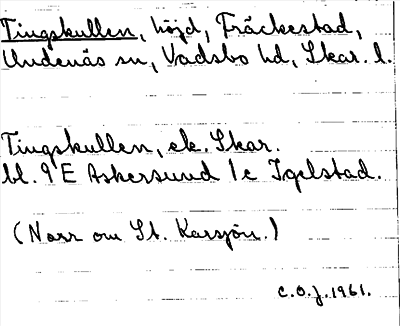 Tingskullen, höjd, Fräckestad,
Undenäs sn, Vadsbo hd, Skar. l.
Tingskullen, ek. Skar.
bl. 9 E Askersund 1c Igelstad.
(Norr om St. Karsjön.)
C.O.J. 1961.